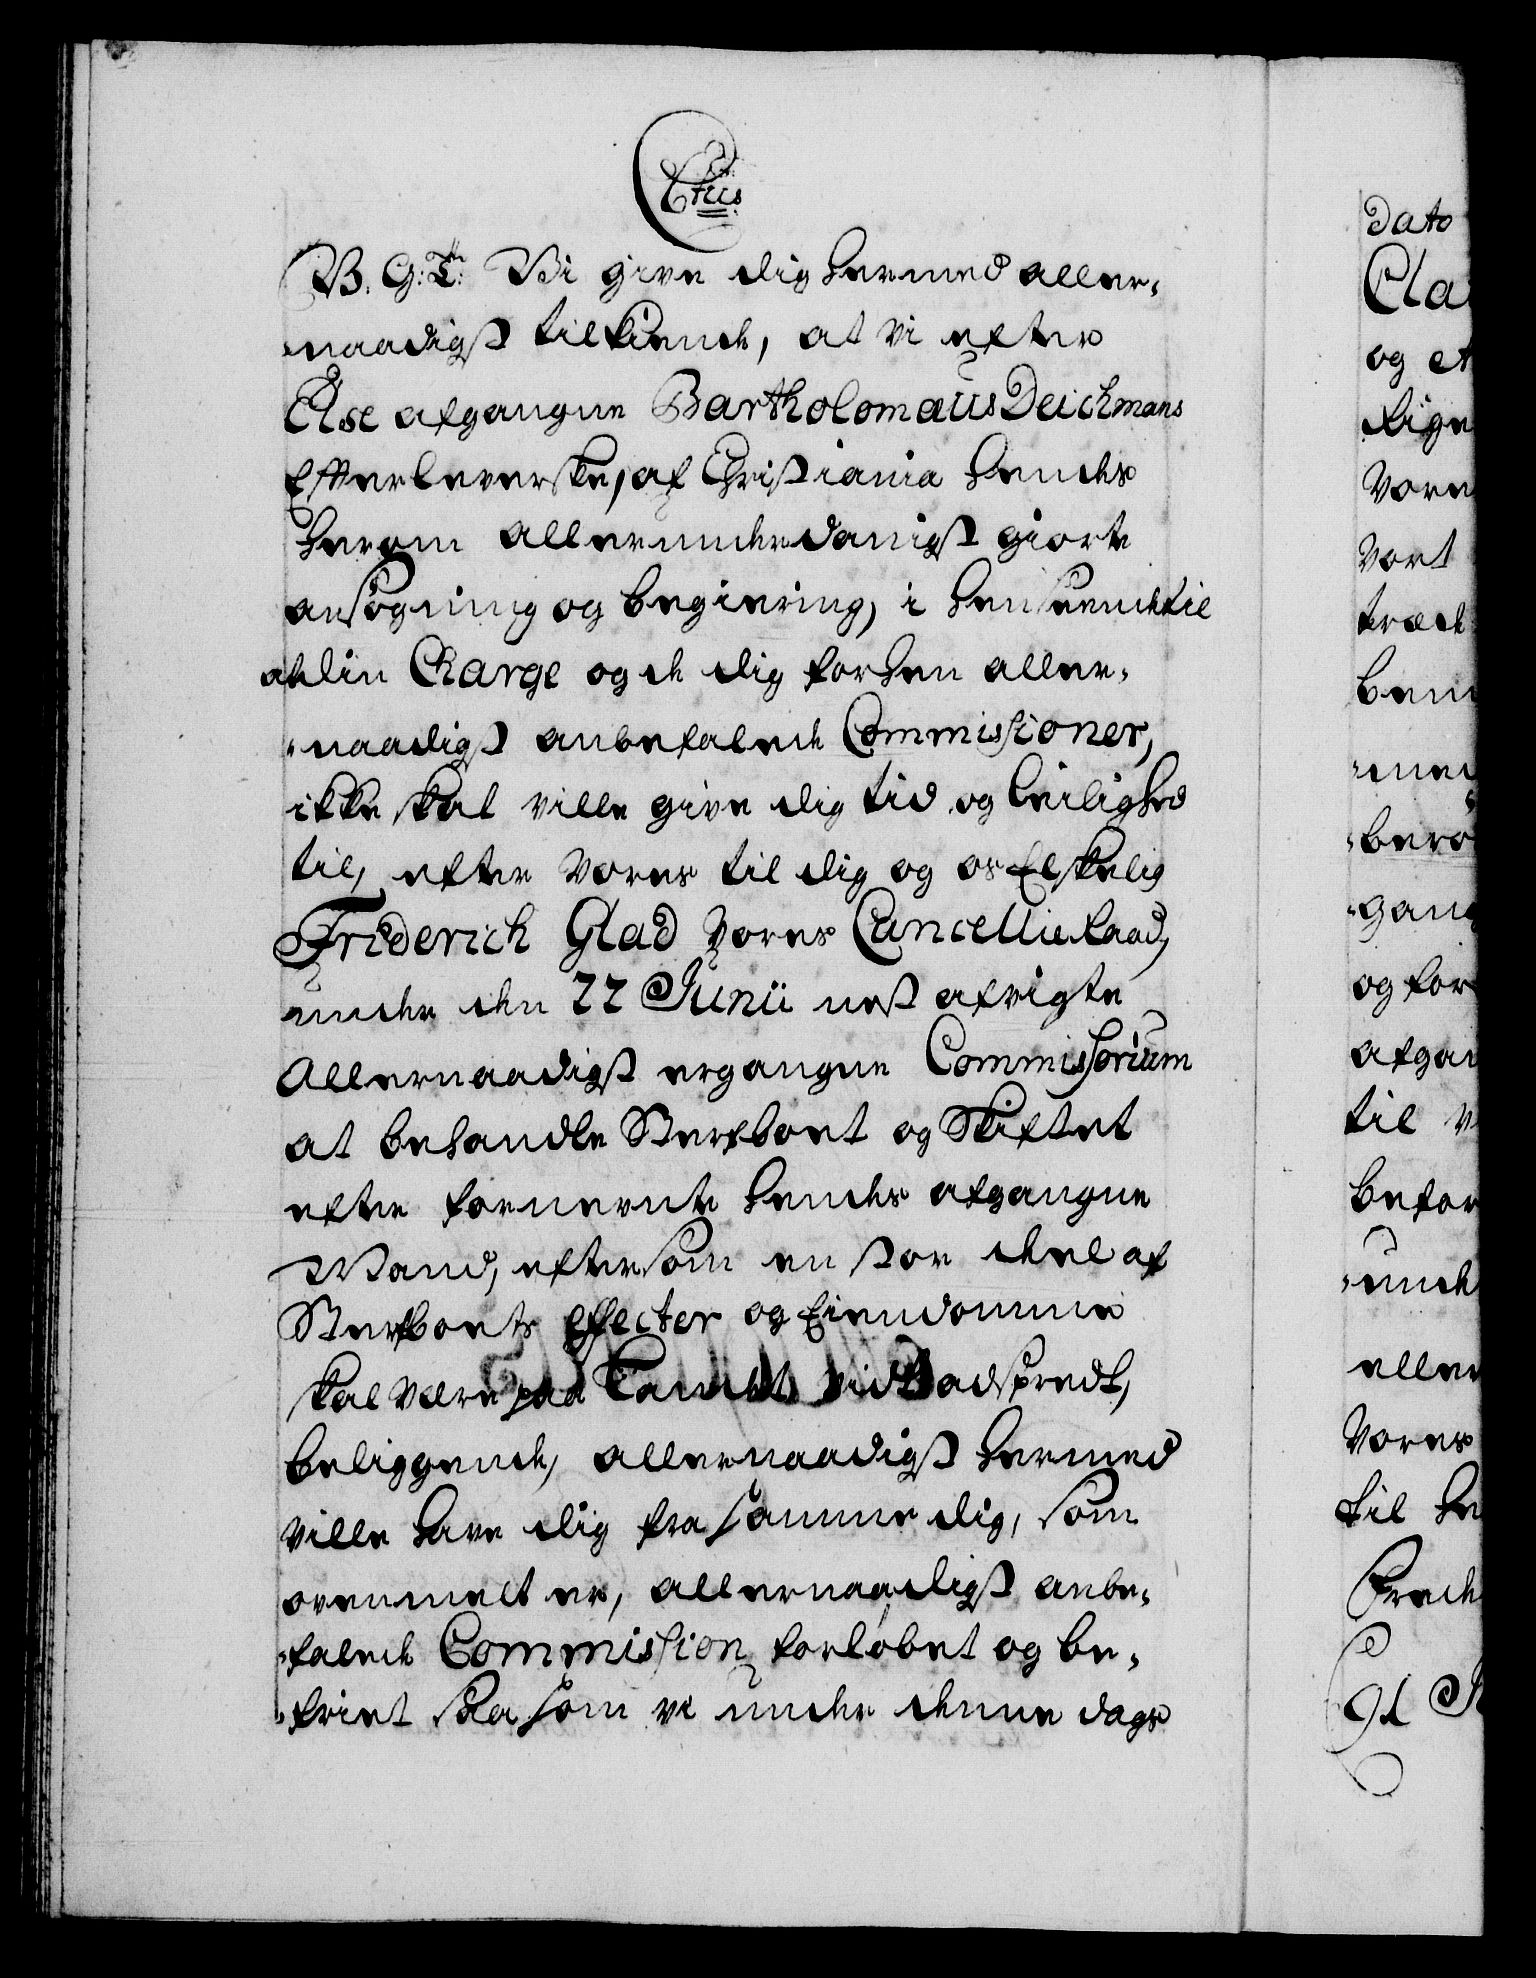 B. G: T: Vi give dig hermed aller-
naadigst tilkiende, at vi efter
Else afgangne Bartholomæus Deichmans
Efterleverske, af Christiania hendes
herom allerunderdanigst giorte
ansøgning og begiering, i henseende til
at din Charge og de dig forhen aller-
naadigst anbefalede Commissioner,
ikke skal ville give dig tid og leilighed
til, efter Vores til dig og os Elskelig
Friderich Glad Vores Cancellie Raad,
under den 22 Junii nest afvigte
Allernaadigst ergangne Commissorium
at behandle Sterfboet og Skiftet
efter fornevnte hendes afgangne
Mand, eftersom en stor deel af
Sterfboets Effecter og Eiendomme
skal være paa Landet vidt adspredt,
beliggende, allernaadigst hermed
ville have dig fra samme dig, som
ovenmelt er, allernaadigst anbe-
falede Commission forløbet og be-
friet saasom vi under denne dags
Dato
og
Vort
til
og for
Vores
til